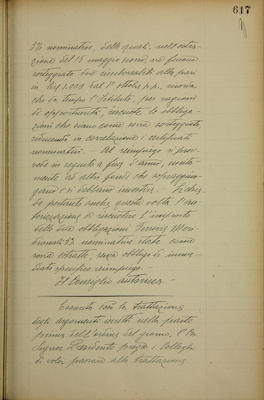 617
3% nominative, delle quali, nell'estra-
zione del 15 maggio scorso, ne furono
sorteggiate due rimborsabili alla pari
in lire 1.000 dal 1° ottobre p.p., avverte
che da tempo l'Istituto, per ragioni
di opportunità, le obbliga-
zioni che siano come sopra sorteggiate,
certificati
nominativi. Al reimpiego si prov-
vede in seguito a fine d'anno, unita-
mente ad altri fondi che
e si debbano investire. Chie-
de pertanto anche questa volta l'au-
torizzazione di riscuotere l'importo
delle due obbligazioni Ferrovie Me-
3% nominative state come
sopra estratte, senza obbligo di imme-
diato specifico reimpiego.
Il Consiglio autorizza.
Esaurita così la trattazione
degli argomenti iscritti nella parte
prima dell'ordine del giorno, l'On.
Signor Presidente prega i Colleghi
di voler passare alla trattazione